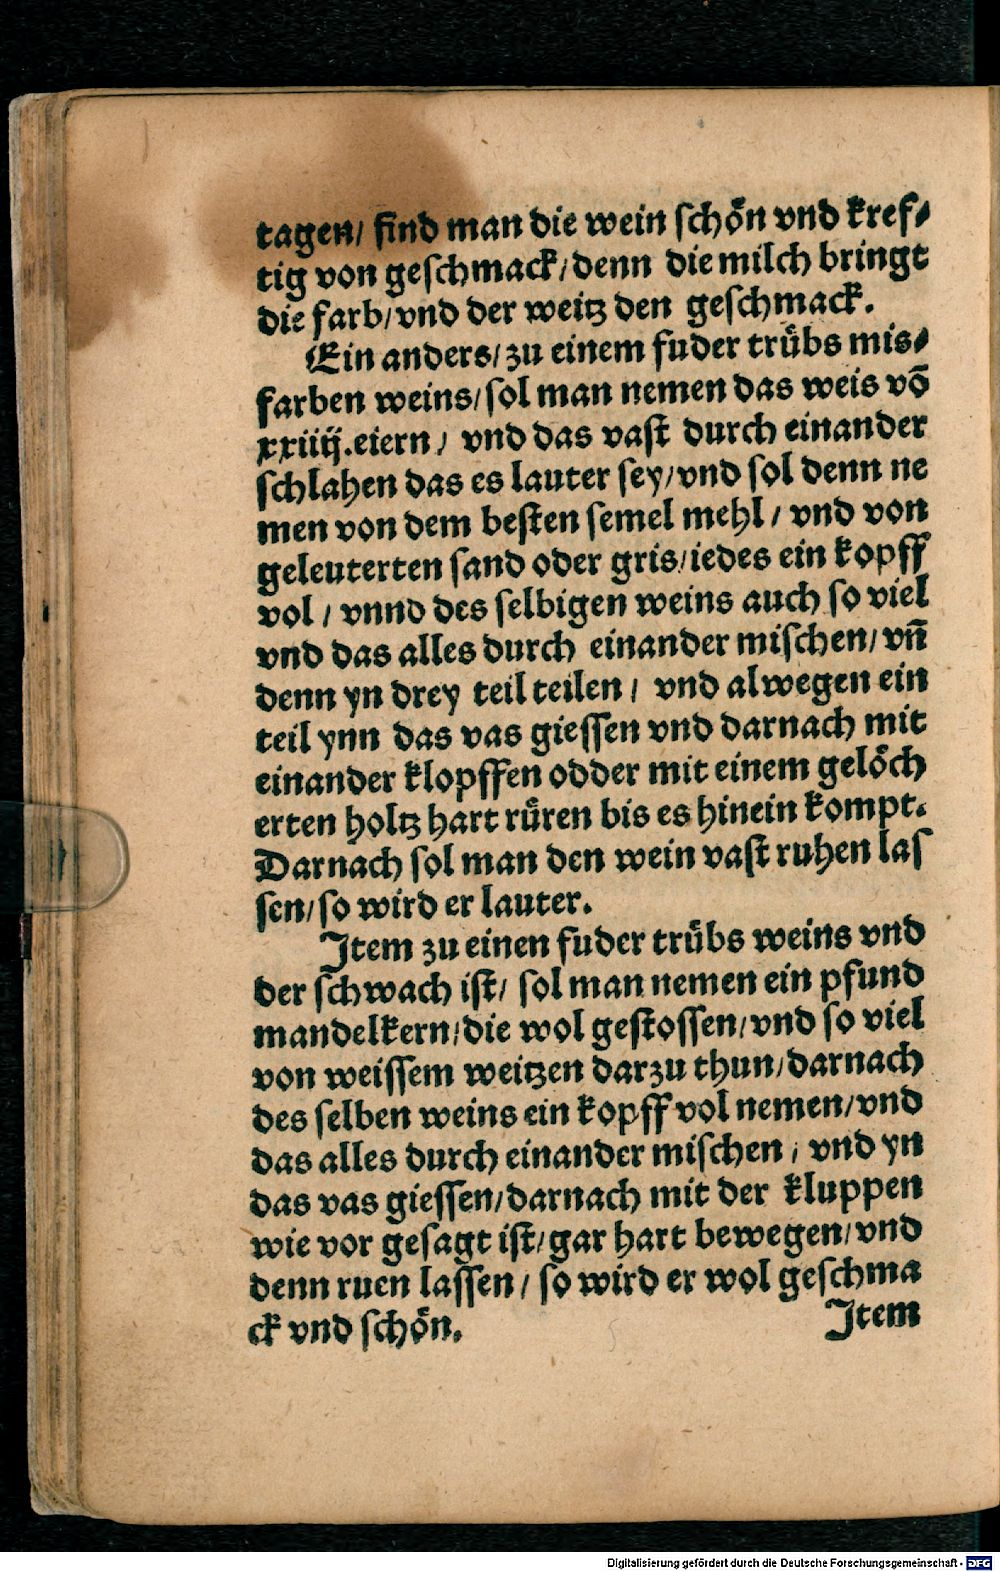 tagen/ find man die wein schön vnd kref⸗
tig von geschmack/denn die milch bringt
die farb/vnd der weitz den geschmack.
Ein anders/zu einem fuder trübs mis⸗
farben weins/sol man nemen das weis võ
xxiiij.eiern/ vnd das vast durch einander
schlahen das es lauter sey/vnd sol denn ne
men von dem besten semel mehl/ vnd von
geleuterten sand oder gris/iedes ein kopff
vol/ vnnd des selbigen weins auch so viel
vnd das alles durch einander mischen/ vñ
denn yn drey teil teilen/ vnd alwegen ein
teil ynn das vas giessen vnd darnach mit
einander klopffen odder mit einem gelöch
erten holtz hart rüren bis es hinein kompt.
Darnach sol man den wein vast ruhen las
sen/so wird er lauter.
Item zu einen fuder trübs weins vnd
der schwach ist/ sol man nemen ein pfund
mandelkern/die wol gestossen/vnd so viel
von weissem weitzen darzu thun/darnach
des selben weins ein kopff vol nemen/vnd
das alles durch einander mischen/ vnd yn
das vas giessen/darnach mit der kluppen
wie vor gesagt ist/gar hart bewegen/vnd
denn ruen lassen/ so wird er wol geschma
ck vnd schön. Item
Digitalisierung gefördert durch die Deutsche Forschungsgemeinschaft - DFG